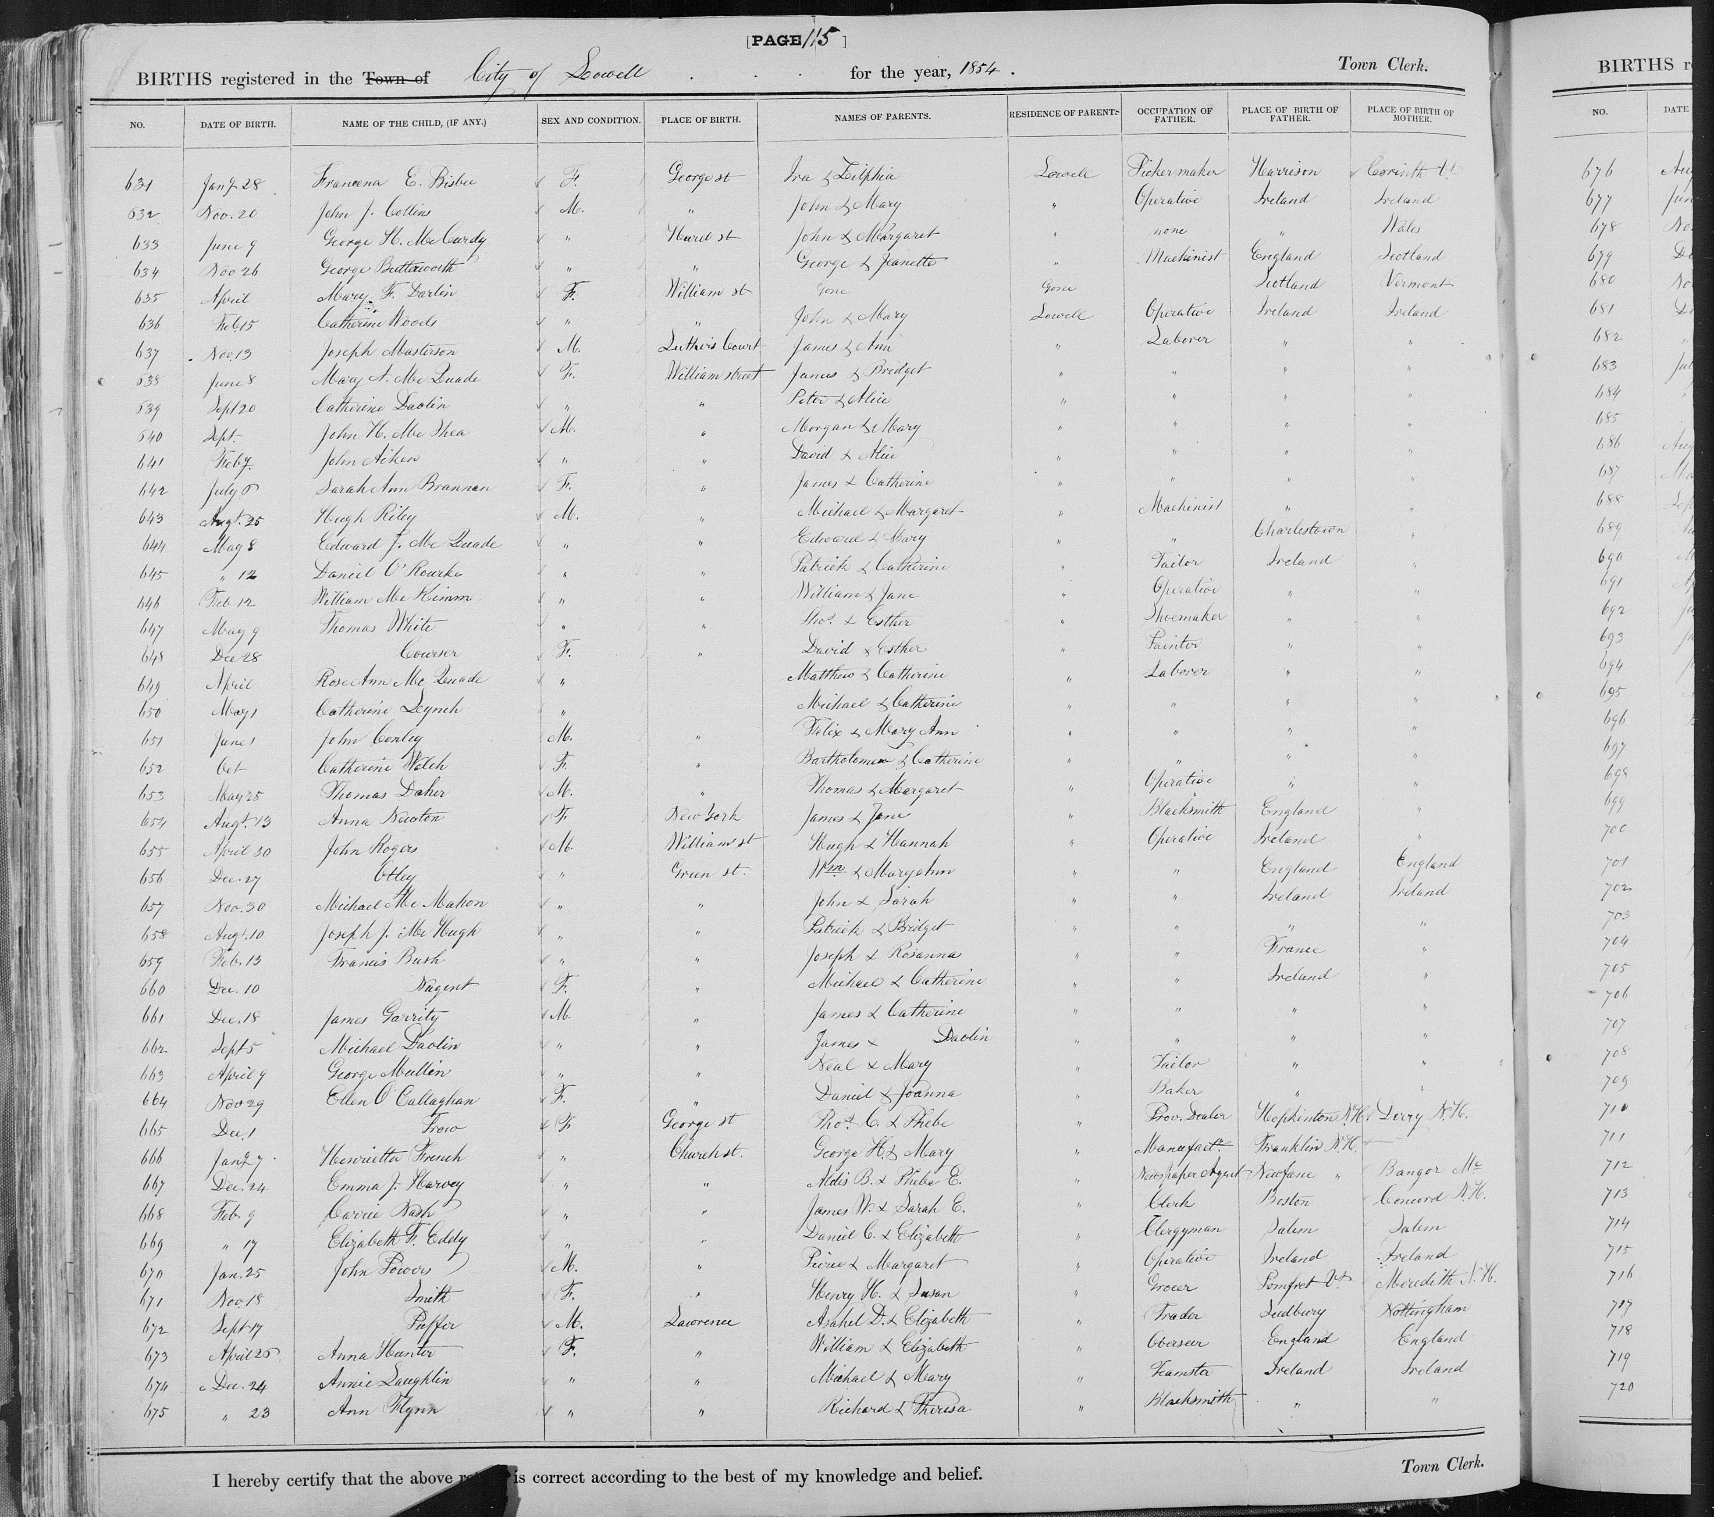 [PAGE 115 ]
BIRTHS registered in the Town of City of Lowell . . . for the year, 1854. Town Clerk.
NO. DATE OF BIRTH. NAME OF THE CHILD, (IF ANY.) SEX AND CONDITION. PLACE OF BIRTH. NAMES OF PARENTS. RESIDENCE OF PARENTS OCCUPATION OF FATHER. PLACE OF BIRTH OF FATHER. PLACE OF BIRTH OF MOTHER.
631 Jany 28 Francena E. Bisbee F. George st Ira & Zilphia Lowell Pickermaker Harrison Corinth Vt
632 Nov. 20 John J. Collins M. " John & Mary " Operative Ireland Ireland
633 June 9 George H. Mc Curdy " Hurd st John & Margaret " none " Wales
634 Nov 26 George Butterworth " " George & Jeanette " Machinist England Scotland
635 April Mary F. Darlin F. William st Gone Gone Scotland Vermont
636 Feb 15 Catherine Woods " " John & Mary Lowell Operative Ireland Ireland
637 Nov. 13 Joseph Masterson M. Luther's Court James & Ann " Laborer " "
638 June 8 Mary A. Mc Quade F. William street James & Bridget " " " "
639 Sept 20 Catherine Davlin " " Peter & Alice " " " "
640 Sept. John H. Mc Shea M. " Morgan & Mary " " " "
641 Feb 7 John Aiken " " David & Alice " " " "
642 July 8 Sarah Ann Brannan F. " James & Catherine " " " "
643 Augt. 25 Hugh Riley M. " Michael & Margaret " Machinist " "
644 May 8 Edward J. Mc Quade " " Edward & Mary " " Charlestown "
645 " 12 Daniel O'Rourke " " Patrick & Catherine " Tailor Ireland "
646 Feb 12 William Mc Kimm " " William & Jane " Operative " "
647 May 9 Thomas White " " Thos. & Esther " Shoemaker " "
648 Dec 28 Courser F. " David & Esther " Painter " "
649 April Rose Ann Mc Quade " Matthew & Catherine " Laborer " "
650 May 1 Catherine Lynch " Michael & Catherine " " " "
651 June 1 John Conley M. " Felix & Mary Ann " " " "
652 Oct Catherine Welch F. " Bartholomew & Catherine " " " "
653 May 25 Thomas Daher M. " Thomas & Margaret " Operative " "
654 Augt. 13 Anna Newton F New York James & Jane " Blacksmith England "
655 April 30 John Rogers M. William st Hugh & Hannah " Operative Ireland "
656 Dec. 27 Otley " Green st. Wm & Mary Ann " " England England
657 Nov. 30 Michael Mc Mahon " " John & Sarah " " Ireland Ireland
658 Augt. 10 Joseph J. Mc Hugh " " Patrick & Bridget " " " "
659 Feb. 13 Francis Bush " " Joseph & Rosanna " " France "
660 Dec. 10 Nugent F. " Michael & Catherine " " Ireland "
661 Dec. 18 James Garrity M. " James & Catherine " " " "
662 Sept 5 Michael Davlin " " James & Davlin " " " "
663 April 9 George Mullin " " Neal & Mary " Tailor " "
664 Nov 29 Ellen O'Callaghan F. " Daniel & Joanna " Baker " "
665 Dec. 1 Frow F George st Thos. C. & Phebe " Prov. Dealer Hopkinton N.H. Derry N.H.
666 Jany 7 Henrietta French " Church st. George H. & Mary " Manufactr. Franklin N.H.
667 Dec. 24 Emma J. Harvey " " Aldis B. & Phebe E. " Newspaper Agent Newfane " Bangor Me
668 Feb. 9 Carrie Nash " " James W. & Sarah E. " Clerk Boston Concord N.H.
669 " 17 Elizabeth F. Eddy " " Daniel C. & Elizabeth " Clergyman Salem Salem
670 Jan. 25 John Powers M. " Pierce & Margaret " Operative Ireland Ireland
671 Nov. 18 Smith F. " Henry H. & Susan " Grocer Pomfret Vt. Meredith N.H.
672 Sept 17 Puffer M. Lawrence Asahel D. & Elizabeth " Trader Sudbury Nottingham
673 April 25 Anna Hunter F. " William & Elizabeth " Overseer England England
674 Dec. 24 Annie Laughlin " " Michael & Mary " Teamster Ireland Ireland
675 " 23 Ann Flynn " " Richard & Theresa " Blacksmith " "
I hereby certify that the above is correct according to the best of my knowledge and belief. Town Clerk.
BIRTHS
NO. DATE
676
677
678
679
680
681
682
683
684
685
686
687
688
689
690
691
692
693
694
695
696
697
698
699
700
701
702
703
704
705
706
707
708
709
710
711
712
713
714
715
716
717
718
719
720